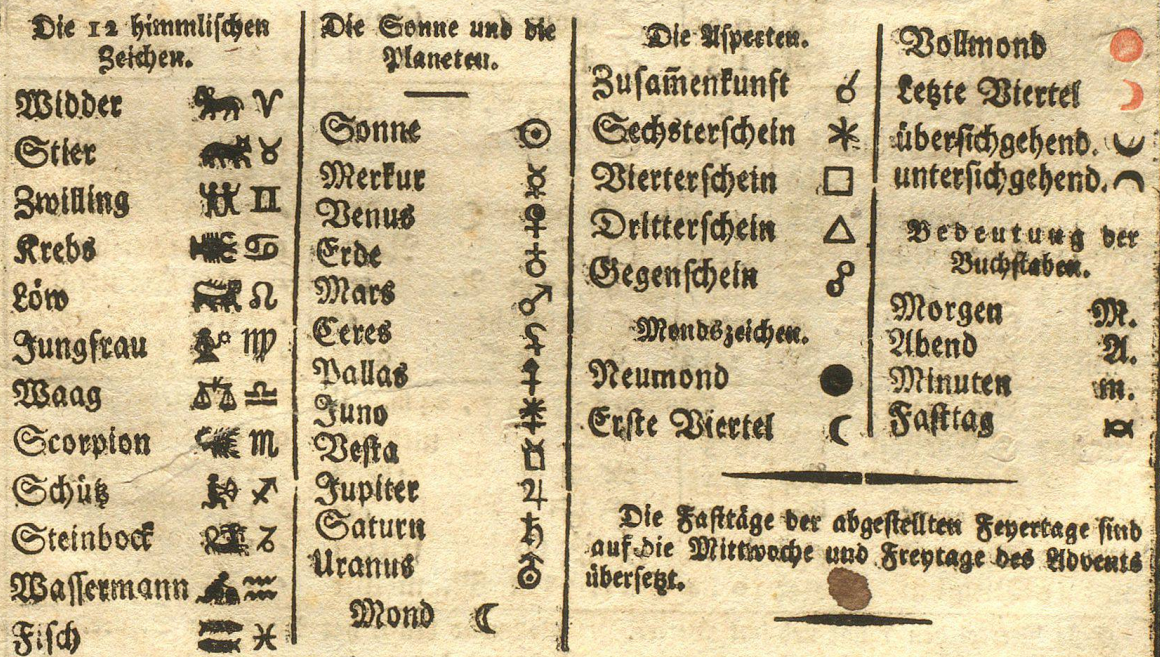 Die 12 himmlischen
Zeichen.
Widder ♈
Stier ♉
Zwilling ♊
Krebs ♋
Löw ♌
Jungfrau ♍
Waag ♎
Scorpion ♏
Schütz ♐
Steinbock ♑
Wassermann ♒
Fisch ♓
Die Sonne und die
Planeten.
Sonne ☉
Merkur ☿
Venus ♀
Erde ♁
Mars ♂
Ceres ⚳
Pallas ⚴
Juno ⚵
Vesta ⚶
Jupiter ♃
Saturn ♄
Uranus ⛢
Mond ☾
Die Aspecten.
Zusam̅enkunft ☌
Sechsterschein ⚹
Vierterschein □
Dritterschein △
Gegenschein ☍
Mondszeichen.
Neumond ●
Erste Viertel ☾
Vollmond
Letzte Viertel ☽
übersichgehend.
untersichgehend.
Bedeutung der
Buchstaben.
Morgen M.
Abend A.
Minuten m.
Fasttag
Die Fasttäge der abgestellten Feyertage sind
auf die Mittwoche und Freytage des Advents
übersetzt.